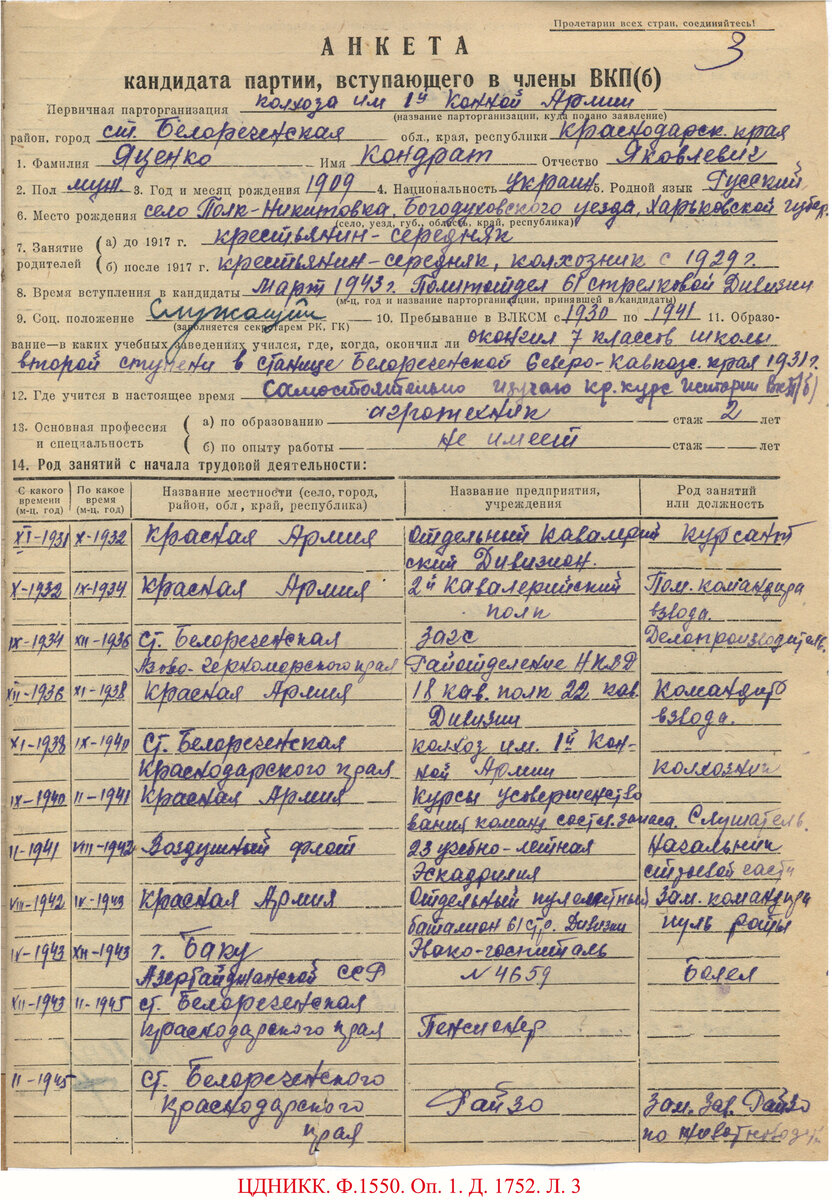 Пролетарии всех стран, соединяйтесь!
3
АНКЕТА
кандидата партии, вступающего в члены ВКП(б)
Первичная парторганизация колхоза им 1й Конной Армии
(название парторганизации, куда подано заявление)
район, город ст. Белореченская обл., края, республики Краснодарск. края
1. Фамилия Яценко Имя Кондрат Отчество Яковлевич
2. Пол муж. 3. Год и месяц рождения 1909 4. Национальность Украин 5. Родной язык Русский
6. Место рождения село Полк-Никитовка, Богодуховского уезда, Харьковской губер.
(село, уезд, губ., область, край, республика)
7. Занятие родителей
(а) до 1917 г. крестьянин-середняк
(б) после 1917 г. крестьянин-середняк, колхозник с 1929 г.
8. Время вступления в кандидаты Март 1943 г. Политотдел 61 стрелковой Дивизии
(м-ц, год и название парторганизации, принявшей в кандидаты)
9. Соц. положение Служащий 10. Пребывание в ВЛКСМ с 1930 по 1941 11. Образо-
(заполняется секретарем РК, ГК)
вание—в каких учебных заведениях учился, где, когда, окончил ли окончил 7 классов школы
второй ступени в станице Белореченской Северо-Кавказс. края 1931 г.
12. Где учится в настоящее время Самостоятельно изучаю кр. курс истории ВКП(б)
13. Основная профессия и специальность
(а) по образованию агротехник стаж 2 лет
(б) по опыту работы не имеет стаж лет
14. Род занятий с начала трудовой деятельности:
С какого времени (м-ц, год) По какое время (м-ц, год) Название местности (село, город, район, обл, край, республика) Название предприятия, учреждения Род занятий или должность
XI-1931 X-1932 Красная Армия Отдельный Кавалерий
ский Дивизион. Курсант
X-1932 IX-1934 Красная Армия 2й Кавалерийский
полк Пом. командира
взвода.
IX-1934 XII-1936 Ст. Белореченская
Азово-Черноморского края Загс
Райотделение НКВД Делопроизводитель.
XII-1936 XI-1938 Красная Армия 18 кав. полк 22 кав.
Дивизии Командир
взвода.
XI-1938 IX-1940 Ст. Белореченская
Краснодарского края колхоз им. 1й Кон-
ной Армии колхозник
IX-1940 II-1941 Красная Армия Курсы усовершенство
вания команд состав. запаса. Слушатель.
II-1941 VIII-1942 Воздушный флот 23 учебно-летная
Эскадрилия Начальник
строевой части
VIII-1942 IV-1943 Красная Армия Отдельный пулеметный
баталион 61 стр. Дивизии Зам. командира
пуль роты
IV-1943 XII-1943 г. Баку
Азербайджанской ССР Эвако-госпиталь
№ 4659 Болел
XII-1943 II-1945 ст. Белореченская
Краснодарского края Пенсионер
II-1945 Ст. Белореченского
Краснодарского
края Райзо Зам. Зав. Райзо
по животноводч.
ЦДНИКК. Ф.1550. Оп. 1. Д. 1752. Л. 3